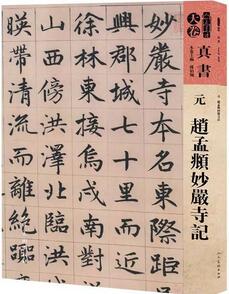 大卷
真書
元
趙孟頫妙嚴寺記
妙嚴寺本名東際距
興郡城七十里而近
徐林東接烏戍南對
山西傍洪澤北臨洪
映帶清流而離絕囂